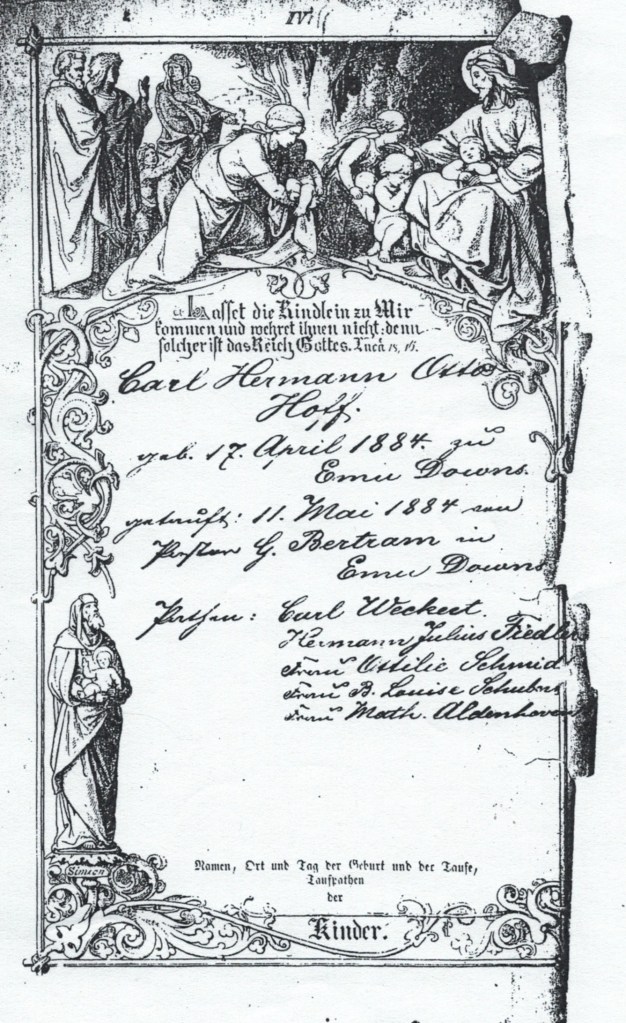 IV.
Lasset die Kindlein zu Mir
kommen und wehret ihnen nicht; denn
solcher ist das Reich Gottes. Lucä 18, 16.
Carl Hermann Otto
Hoff.
geb. 17. April 1884. zu
Emu Downs.
getauft: 11. Mai 1884 von
Pastor G. Bertram in
Emu Downs
Pathen: Carl Weckert.
Hermann Julius Fiedler
Frau Ottilie Schmid
Frau B. Louise Schubert
Frau Math. Aldenhoven
Simeon
Namen, Ort und Tag der Geburt und der Taufe,
Taufpathen
der
Kinder.